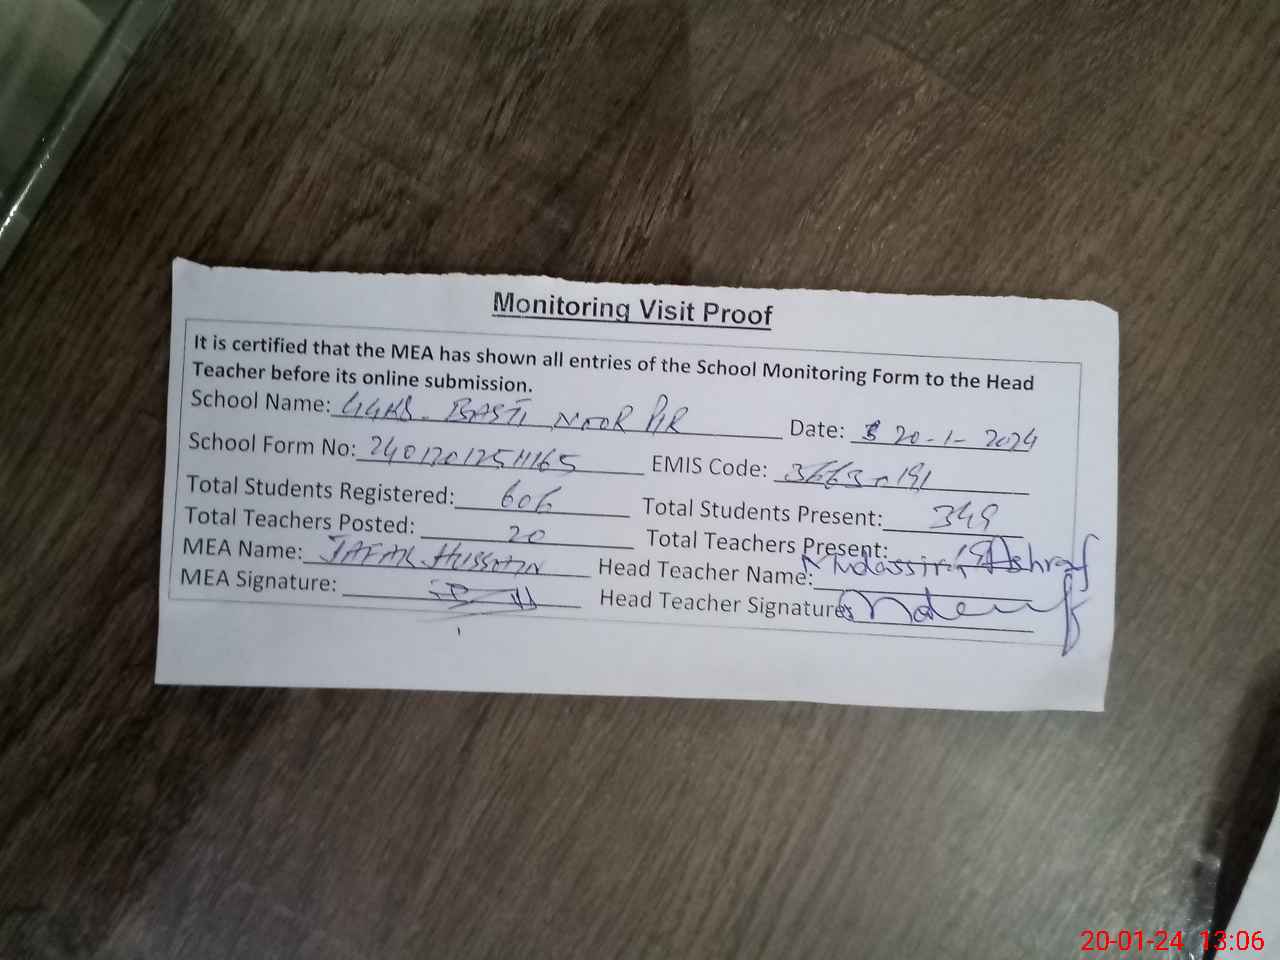 Monitoring Visit Proof
It is certified that the MEA has shown all entries of the School Monitoring Form to the Head
Teacher before its online submission.
School Name: GGHS. BASTI NOOR PIR Date: 20-1-2024
School Form No: EMIS Code:
Total Students Registered: 606 Total Students Present: 349
Total Teachers Posted: 20 Total Teachers Present:
MEA Name: JAFAR HUSSAIN Head Teacher Name: Mudassira Ashraf
MEA Signature: Head Teacher Signature:
20-01-24 13:06